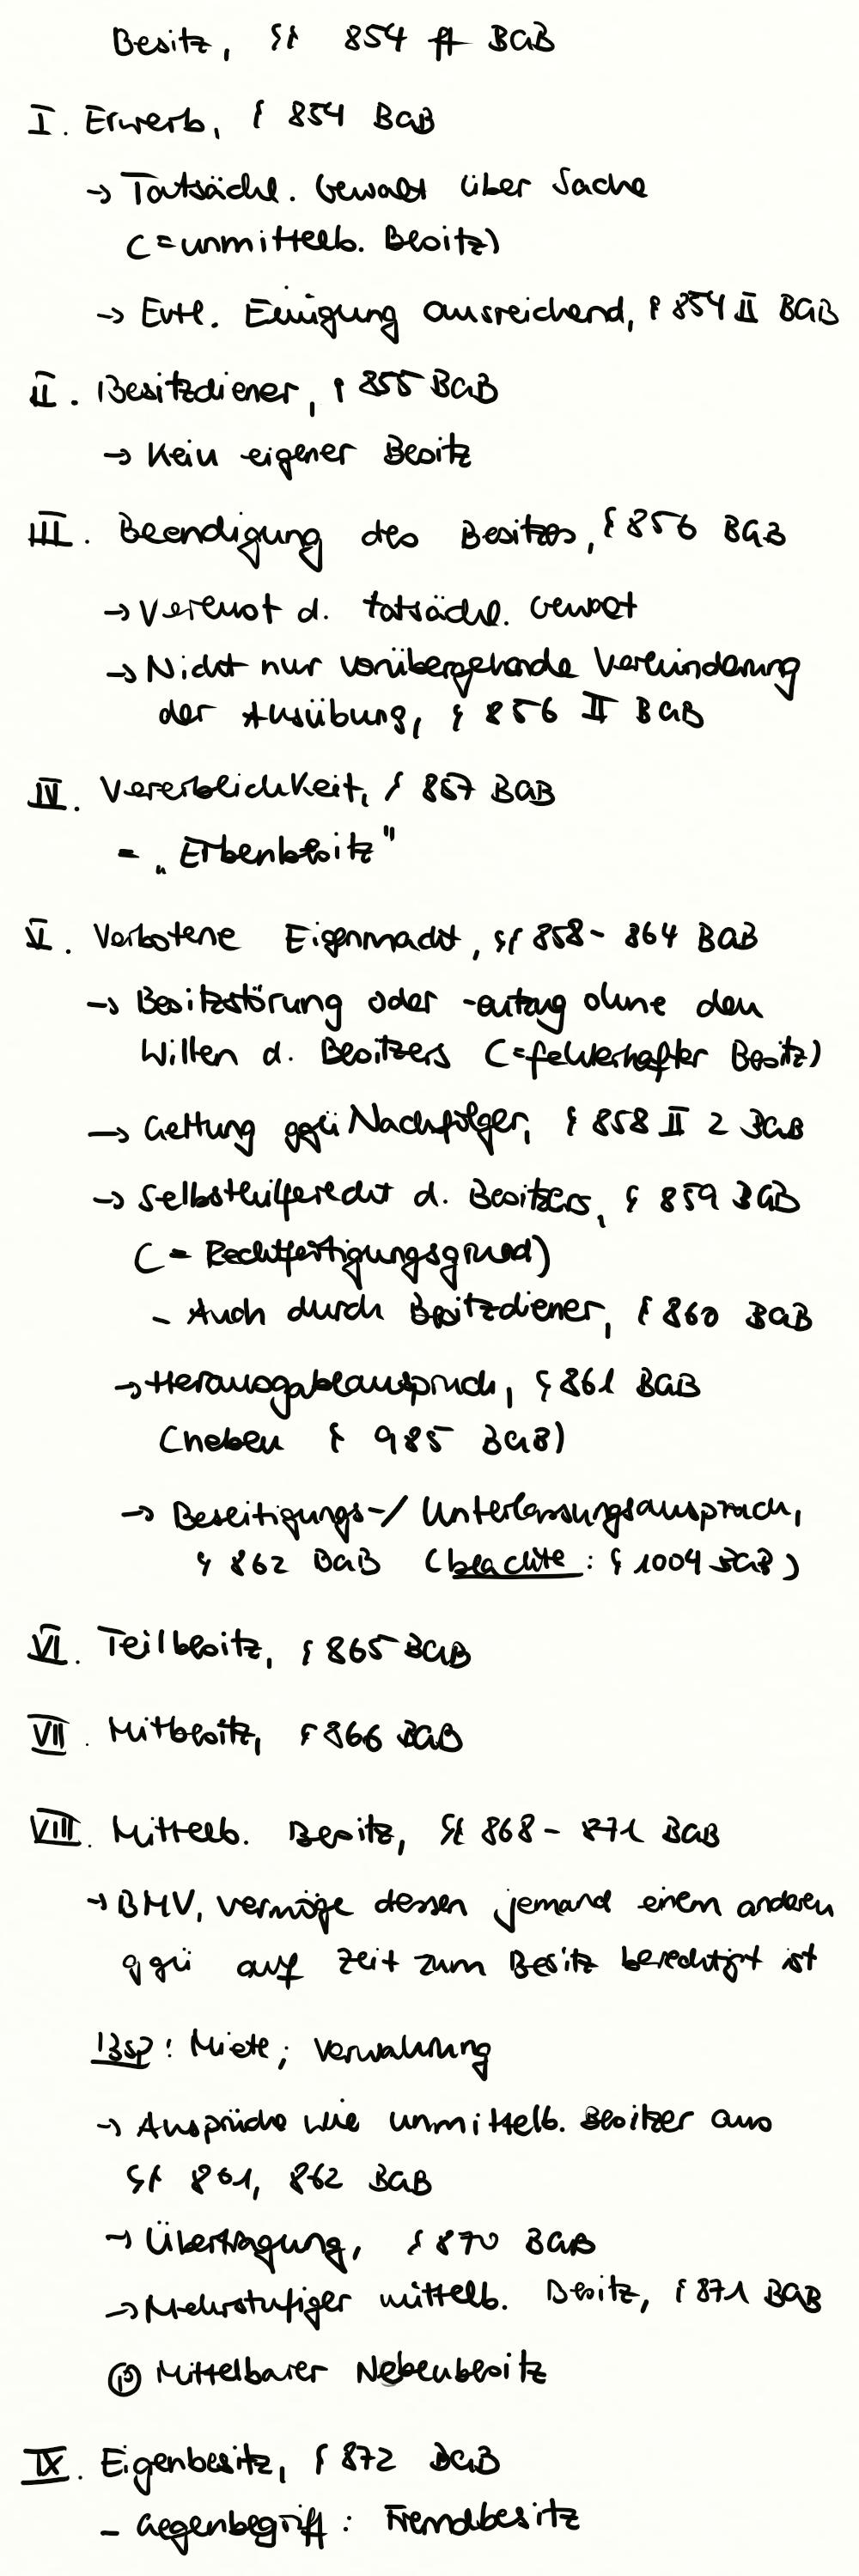 Besitz, §§ 854 ff BGB
I. Erwerb, § 854 BGB
→ Tatsächl. Gewalt über Sache
(= unmittelb. Besitz)
→ Evtl. Einigung ausreichend, § 854 II BGB
II. Besitzdiener, § 855 BGB
→ Kein eigener Besitz
III. Beendigung des Besitzes, § 856 BGB
→ Verlust d. tatsächl. Gewalt
→ Nicht nur vorübergehende Verhinderung
der Ausübung, § 856 II BGB
IV. Vererblichkeit, § 857 BGB
= „Erbenbesitz"
V. Verbotene Eigenmacht, §§ 858 - 864 BGB
→ Besitzstörung oder -entzug ohne den
Willen d. Besitzers (= fehlerhafter Besitz)
→ Geltung ggü Nachfolger, § 858 II 2 BGB
→ Selbsthilferecht d. Besitzers, § 859 BGB
(= Rechtfertigungsgrund)
- Auch durch Besitzdiener, § 860 BGB
→ Herausgabeanspruch, § 861 BGB
(neben § 985 BGB)
→ Beseitigungs-/ Unterlassungsanspruch,
§ 862 BGB (beachte: § 1004 BGB)
VI. Teilbesitz, § 865 BGB
VII. Mitbesitz, § 866 BGB
VIII. Mittelb. Besitz, §§ 868 - 871 BGB
→ BMV, vermöge dessen jemand einem anderen
ggü auf Zeit zum Besitz berechtigt ist
Bsp: Miete; Verwahrung
→ Ansprüche wie unmittelb. Besitzer aus
§§ 861, 862 BGB
→ Übertragung, § 870 BGB
→ Mehrstufiger mittelb. Besitz, § 871 BGB
Ⓟ Mittelbarer Nebenbesitz
IX. Eigenbesitz, § 872 BGB
- Gegenbegriff: Fremdbesitz